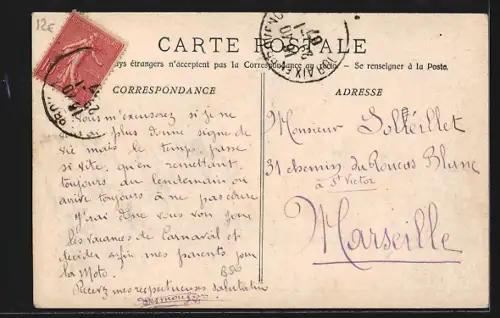 12€
CARTE POSTALE
pays étrangers n'acceptent pas la Correspondance au recto. — Se renseigner à la Poste.
CORRESPONDANCE
ADRESSE
Vous m'excuserez si je ne
ai plus donné signe de
vie mais le temps passe
si vite, qu'en remettant
toujours du lendemain on
arrive toujours à ne pas écrire
J'irai vous voir pour
les vacances de Carnaval et
décider enfin mes parents pour
la moto.
Recevez mes respectueuses salutations
Monsieur
31 chemin du Roucas Blanc
à St Victor
Marseille